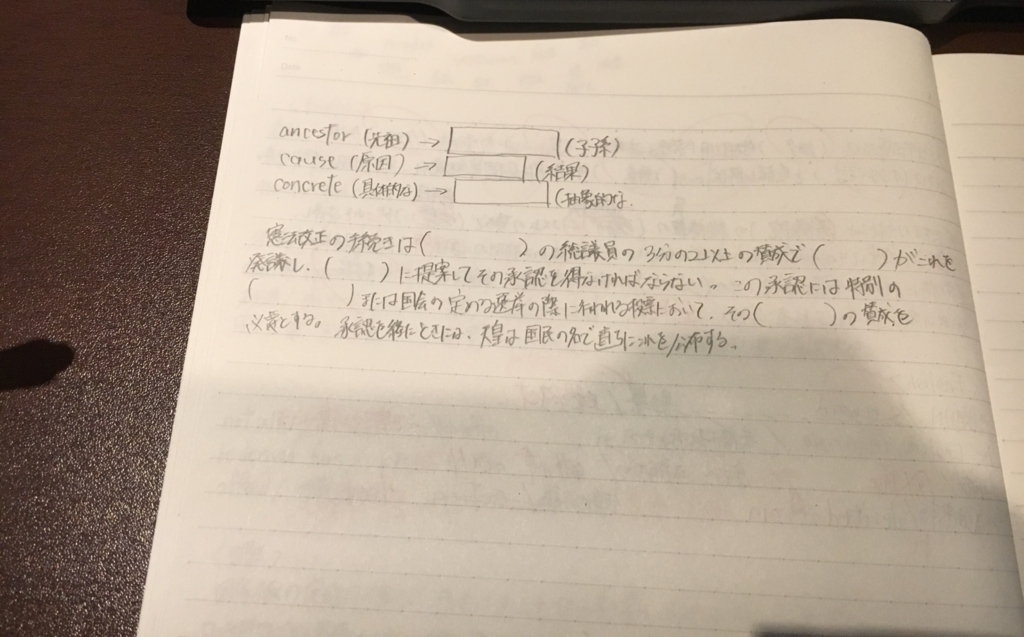 ancestor (先祖) → (子孫)
cause (原因) → (結果)
concrete (具体的な) → (抽象的な.
憲法改正の手続きは( )の総議員の3分の2以上の賛成で( )がこれを
発議し.( )に提案してその承認を得なければならない。この承認には特別の
( )または国会の定める選挙の際に行われる投票において.その( )の賛成を
必要とする。承認を経たときには.天皇は国民の名で直ちにこれを公布する.